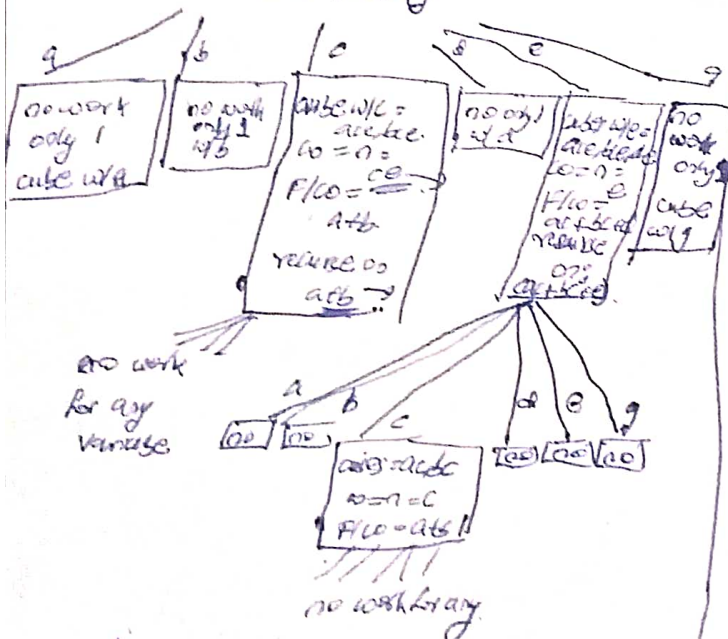 a
b
c
d
e
g
no work
only 1
cube w/a
no work
only 1
w/b
cube w/c =
ace, bce
co = n =
ce
F/co =
a+b
recurse on
a+b
no only 1
w/d
cubes w/e =
co = n =
e
F/co =
ac+bc+d
recurse
on:
no
work
only 1
cube
w/g
no work
for any
variable
a
b
c
d
e
g
no
no
no
no
no
cubes = ac, bc
co = n = c
F/co = a+b
no work for any